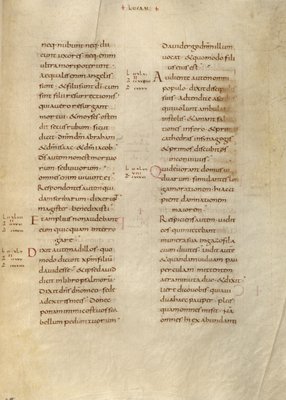 LUCAM
neq· nubunt neq· du
cunt uxores neq· enim
ultra mori poterunt
Aequales enim angelis
sunt & filii sunt di cum
sint filii resurrectionis
quia uero resurgant
mortui & moyses osten
dit secus rubum sicut
dicit dnm dm abraham
& dm isac & dm iacob
ds autem non est mortuo
rum sed uiuorum
omnes enim uiuunt ei
Respondentes autem qui
dam scribarum dixer ei
magister bene dixisti
Et amplius non audebant
eum quicquam interro
gare
Dixit autem ad illos quo
modo dicunt xpm filiu
dauid esse & ipse dauid
dicit in libro psalmoru
Dixit dns dno meo sede
a dextris meis Donec
ponam inimicos tuos sca
bellum pedum tuorum
Dauid ergo dnm illum
uocat & quomodo fili
us eius est
Audiente autem omni
populo dixit discipu
lis suis adtendite a scri
bis qui uolunt ambula
re in stolis & amant salu
tationes in foro & primas
cathedras in synagogis
& primos discubitus in
conuiuiis
Qui deuorant domus ui
duarum simulantes lon
gam orationem hi acci
pient damnationem
maiorem
Respiciens autem uidit
eos qui mittebant
munera sua in gazofila
cium diuites uidit aute
& quandam uiduam pau
perculam mittentem
aera minuta duo & dixit
uere dico uobis quia ui
dua haec pauper plus
quam omnes misit Na
omnes hi ex abundanti